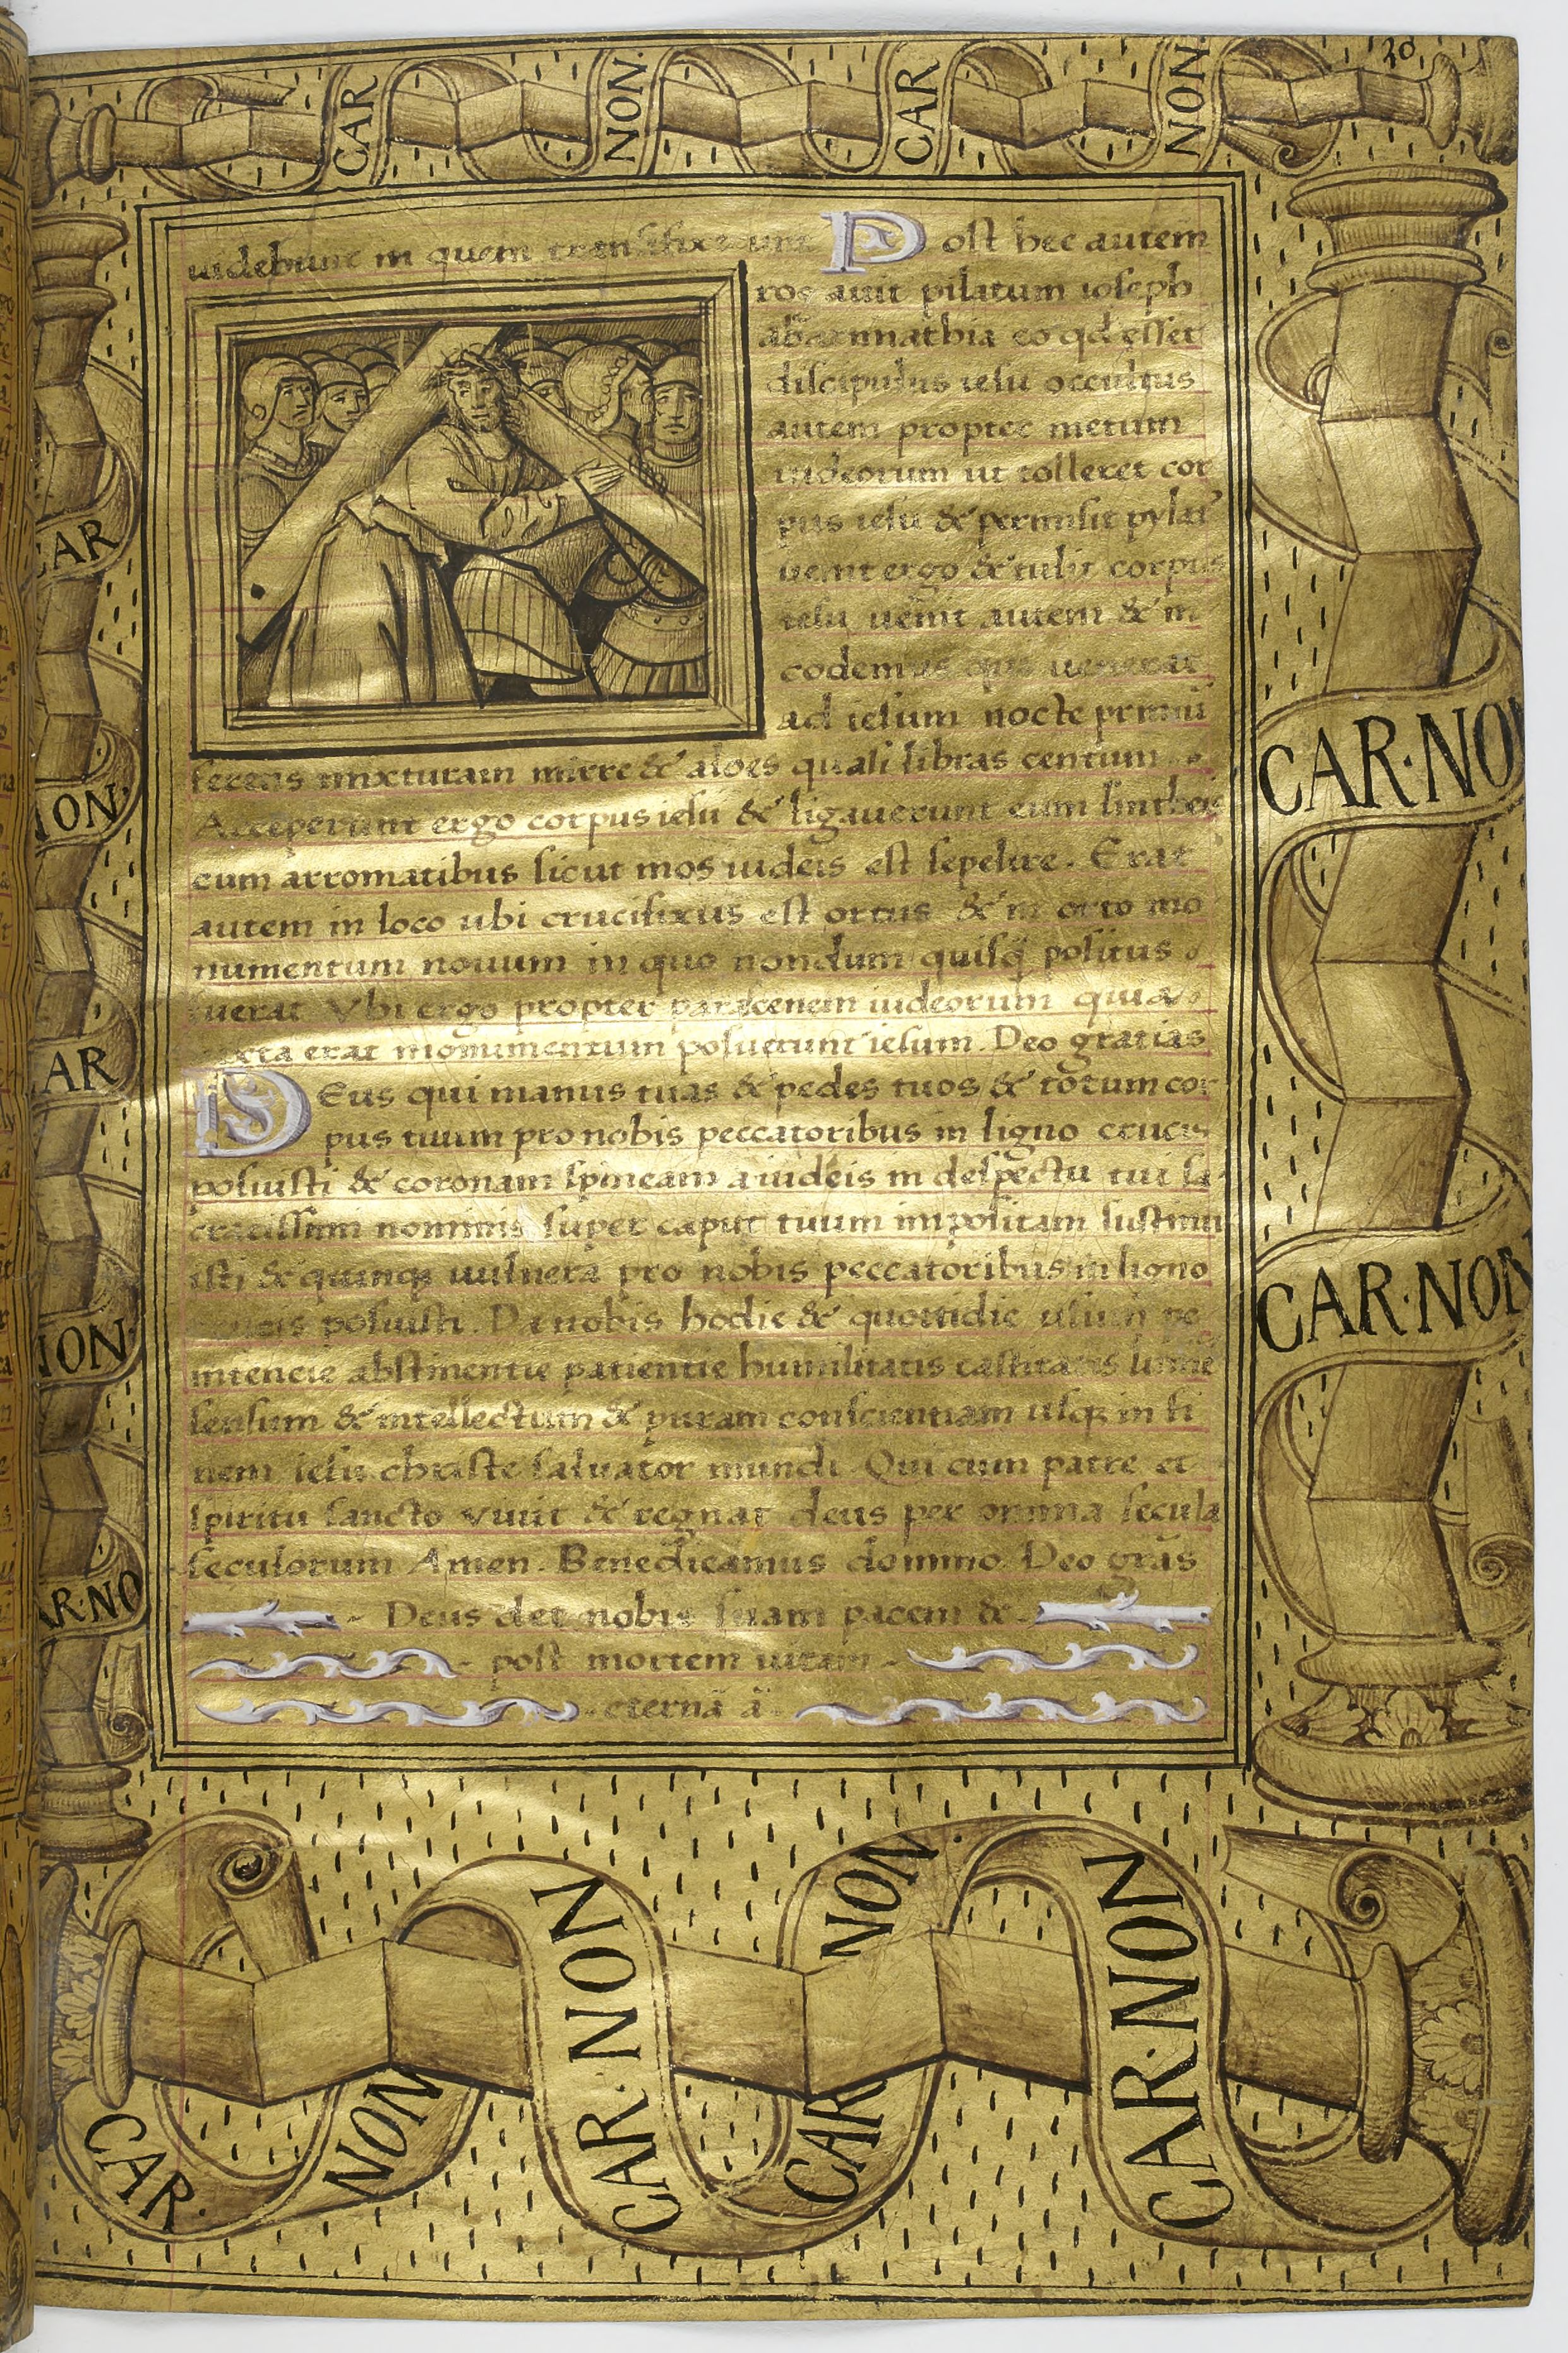 20
CAR NON CAR NON
uidebunt in quem transfixerunt Post hec autem
rogauit pilatum ioseph
abarimathia eo qd esset
discipulus iesu occultus
autem propter metum
iudeorum ut tolleret cor
pus iesu & permisit pylat
uenit ergo & tulit corpus
iesu uenit autem & ni
codemus qui uenerat
ad iesum nocte primū
ferens mixturam mirre & aloes quasi libras centum
Acceperunt ergo corpus iesu & ligauerunt eum lintheis
cum arromatibus sicut mos iudeis est sepelire. Erat
autem in loco ubi crucifixus est ortus & in orto mo
numentum nouum in quo nondum quisq̄ positus
fuerat Vbi ergo propter parascenem iudeorum quia
iuxta erat monumentum posuerunt iesum. Deo gratias
DEus qui manus tuas & pedes tuos & totum cor
pus tuum pro nobis peccatoribus in ligno crucis
posuisti & coronam spineam a iudeis in despectu tui sa
cratissimi nominis super caput tuum impositam sustinu
isti & quinq; uulnera pro nobis peccatoribus in ligno
crucis posuisti. Da nobis hodie & quottidie usum pe
nitencie abstinentie patientie humilitatis castitatis lumē
sensum & intellectum & puram conscientiam usq; in fi
nem iesu christe saluator mundi Qui cum patre et
spiritu sancto viuit & regnat deus per omnia secula
seculorum Amen. Benedicamus domino. Deo grās
Deus det nobis suam pacem &
post mortem uitam
eternā ā
CAR
NON
AR
NON
AR·NO
CAR·NO
CAR·NON
CAR·
NON
CAR·NON
CAR
NON
CAR·NON